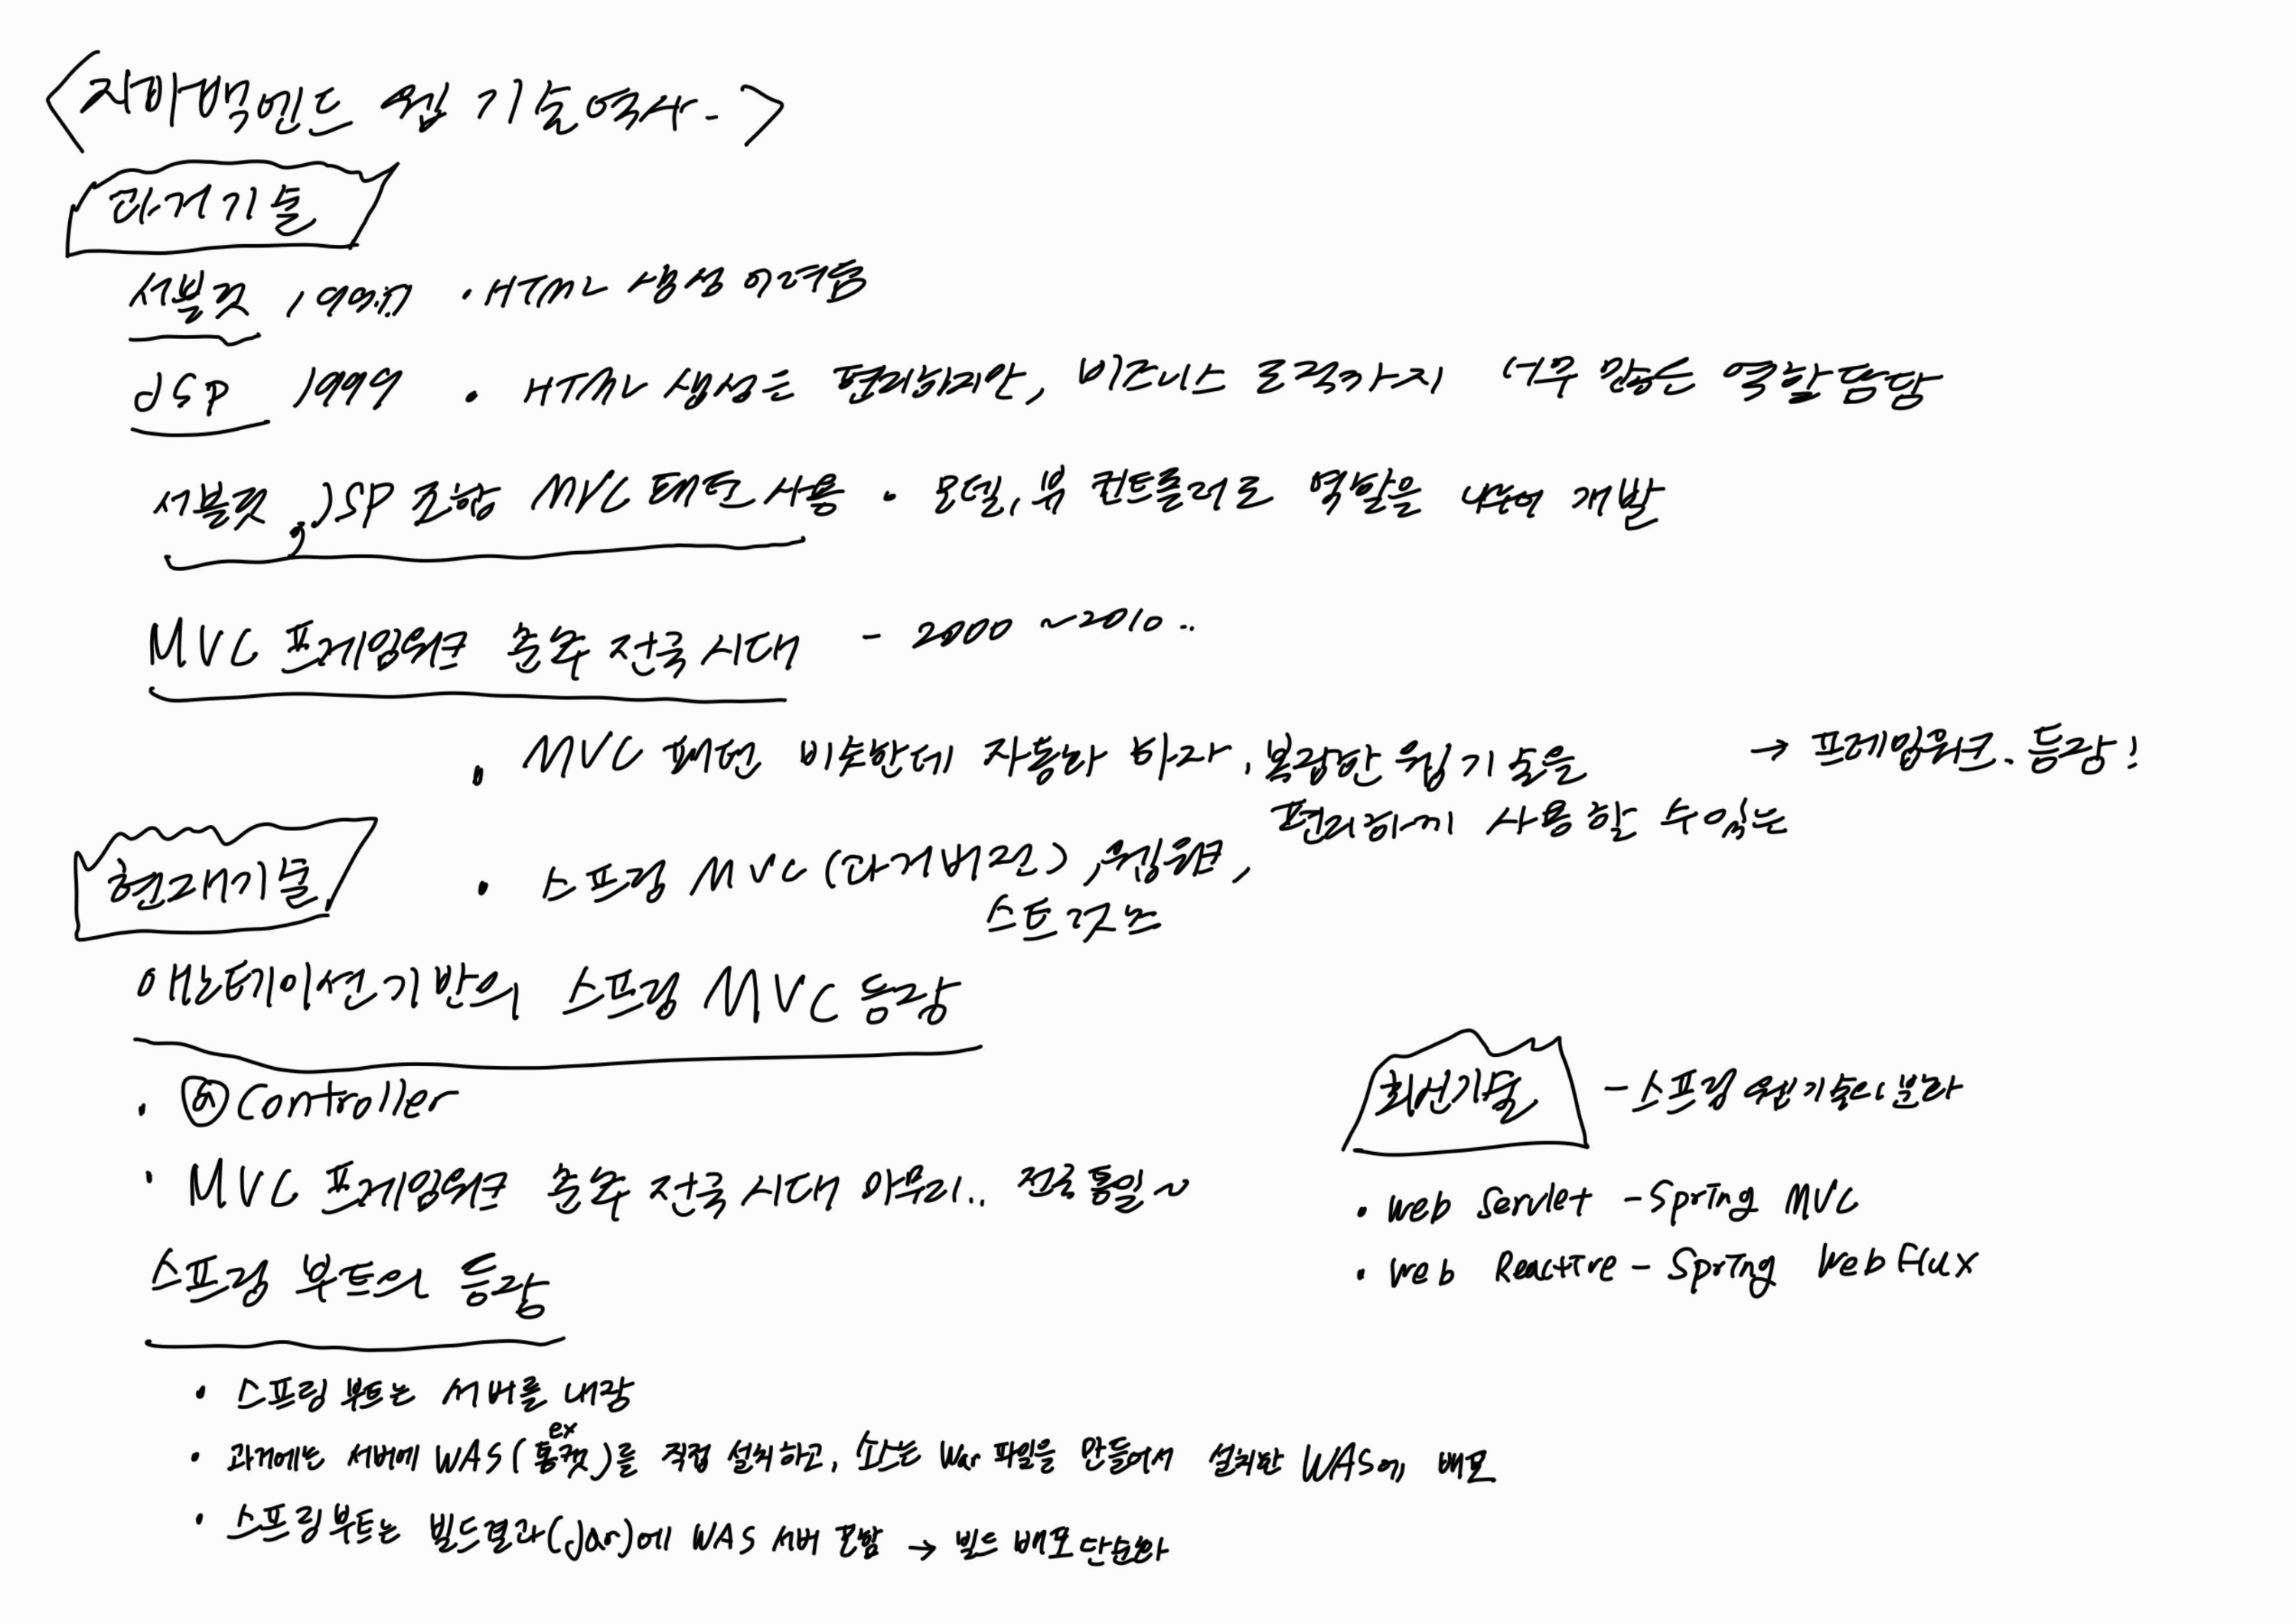 <자바백엔드 웹 기술역사->
과거기술
서블릿 1997 · HTML 생성 어려움
JSP 1999 · HTML 생성은 편리하지만, 비즈니스 로직까지 너무 많은 역할 담당
서블릿, JSP 조합 MVC 패턴 사용 · 모델, 뷰 컨트롤러로 역할을 나누어 개발
MVC 프레임워크 춘추 전국 시대 - 2000 ~2010..
· MVC 패턴 비슷한데 자동화 하자, 복잡한 웹 기술을 편리하게 사용할 수 있는 → 프레임워크. 등장!
· 스프링 MVC (과거버전), 웹워크,
스트럿츠
현재기술
애노테이션기반의 스프링 MVC 등장
· @Controller
· MVC 프레임워크 춘추 전국 시대 마무리.. 전국 통일~
스프링 부트의 등장
· 스프링 부트는 서버를 내장
· 과거에는 서버에 WAS(ex 톰캣)를 직접 설치하고, 소스는 War 파일을 만들어서 설치한 WAS에 배포
· 스프링부트는 빌드결과(Jar)에 WAS 서버 포함 → 빌드 배포 단순화
최신기술 - 스프링 웹 기술의 분화
· Web Servlet - Spring MVC
· Web Reactive - Spring WebFlux